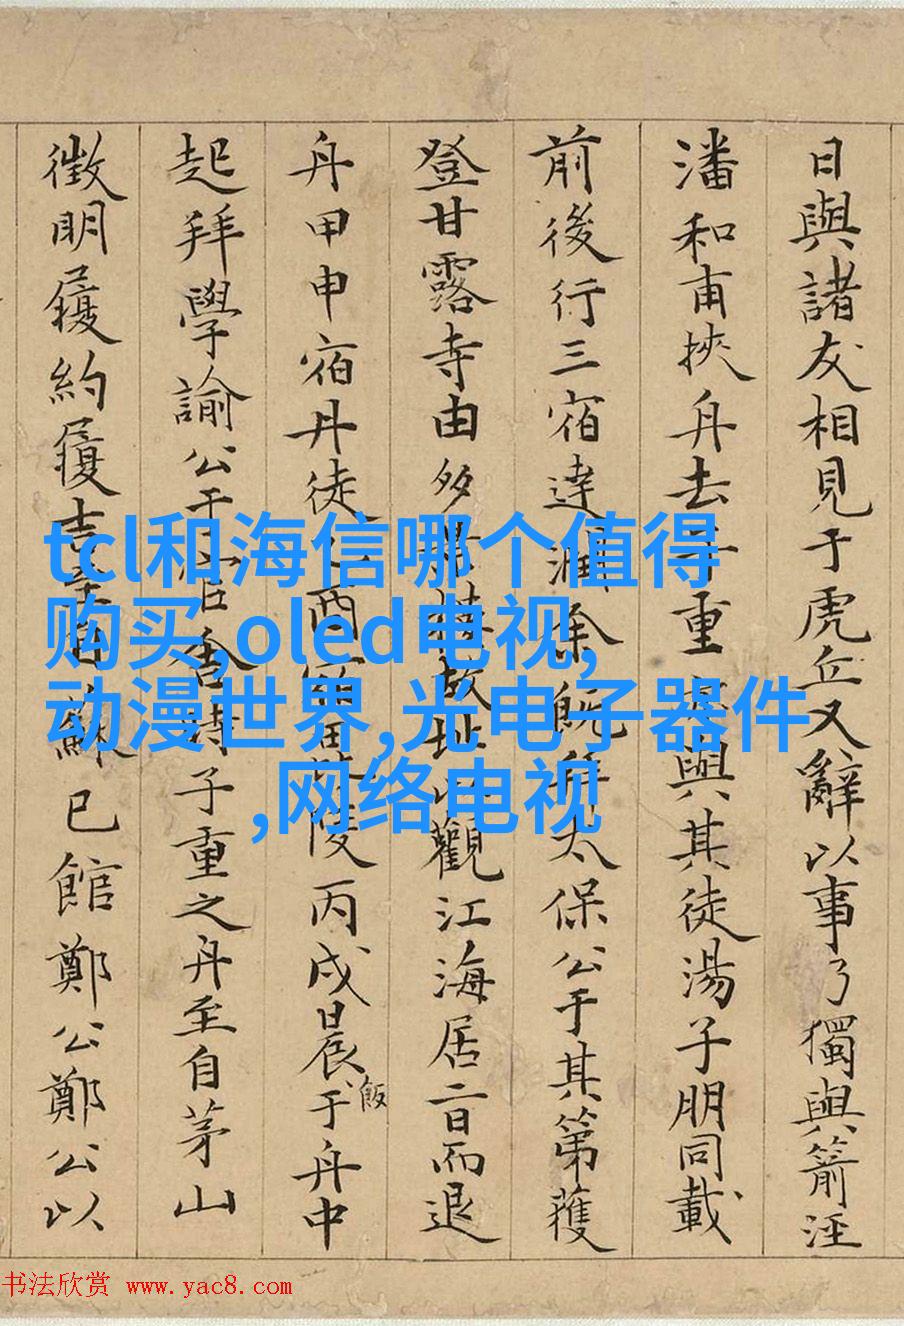 日與諸友相見于虎丘又辭以事乃獨與箭涇
潘和甫挾舟去子重寔與其徒湯子朋同載
前後行三宿達潤余既拜太保公于其第獲
登甘露寺由多景樓故址以觀江海居二日而退
舟甲申宿丹徒乙酉宿毘陵丙戌晨飯于舟中
起拜學諭公于官舍待子重之舟至自茅山
徵明履約履吉至自蘇已館鄭公鄭公以
tcl和海信哪个值得
购买,oled电视,
动漫世界,光电子器件
,网络电视
书法欣赏 www.yac8.com